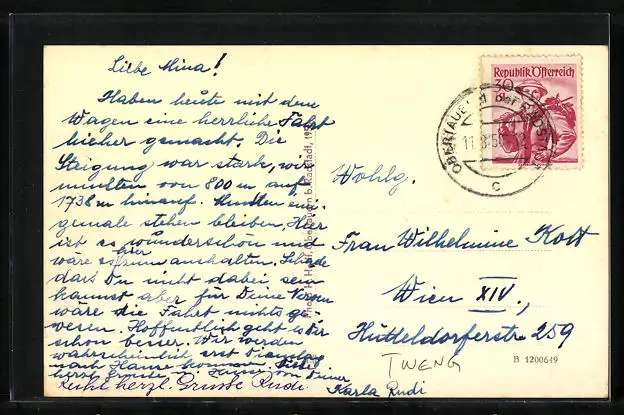 Liebe Mina!
Haben heute mit dem
Wagen eine herrliche Fahrt
hieher gemacht. Die
Steigung war stark, wir
mußten von 800 m auf
1738 m hinauf. Mußten eini-
gemale stehen bleiben. Hier
ist es wunderschön und
wäre es zum anhalten. Schade
hier
dass Du nicht dabei sein
kannst aber für Deine Nerven
wäre die Fahrt nichts ge-
wesen. Hoffentlich geht es Dir
schon besser. Wir werden
wahrscheinlich erst Dienstag
nach Hause kommen. Viele
herzl. Grüsse u. Küsse von Deiner
Karla Rudi
Recht herzl. Grüsse Rudi
Republik Österreich
30
OBERTAUERN bei RADSTADT
c
Wohlg.
Frau Wilhelmine Kott
Wien XIV.,
Hütteldorferstr. 259
TWENG
B 1200649